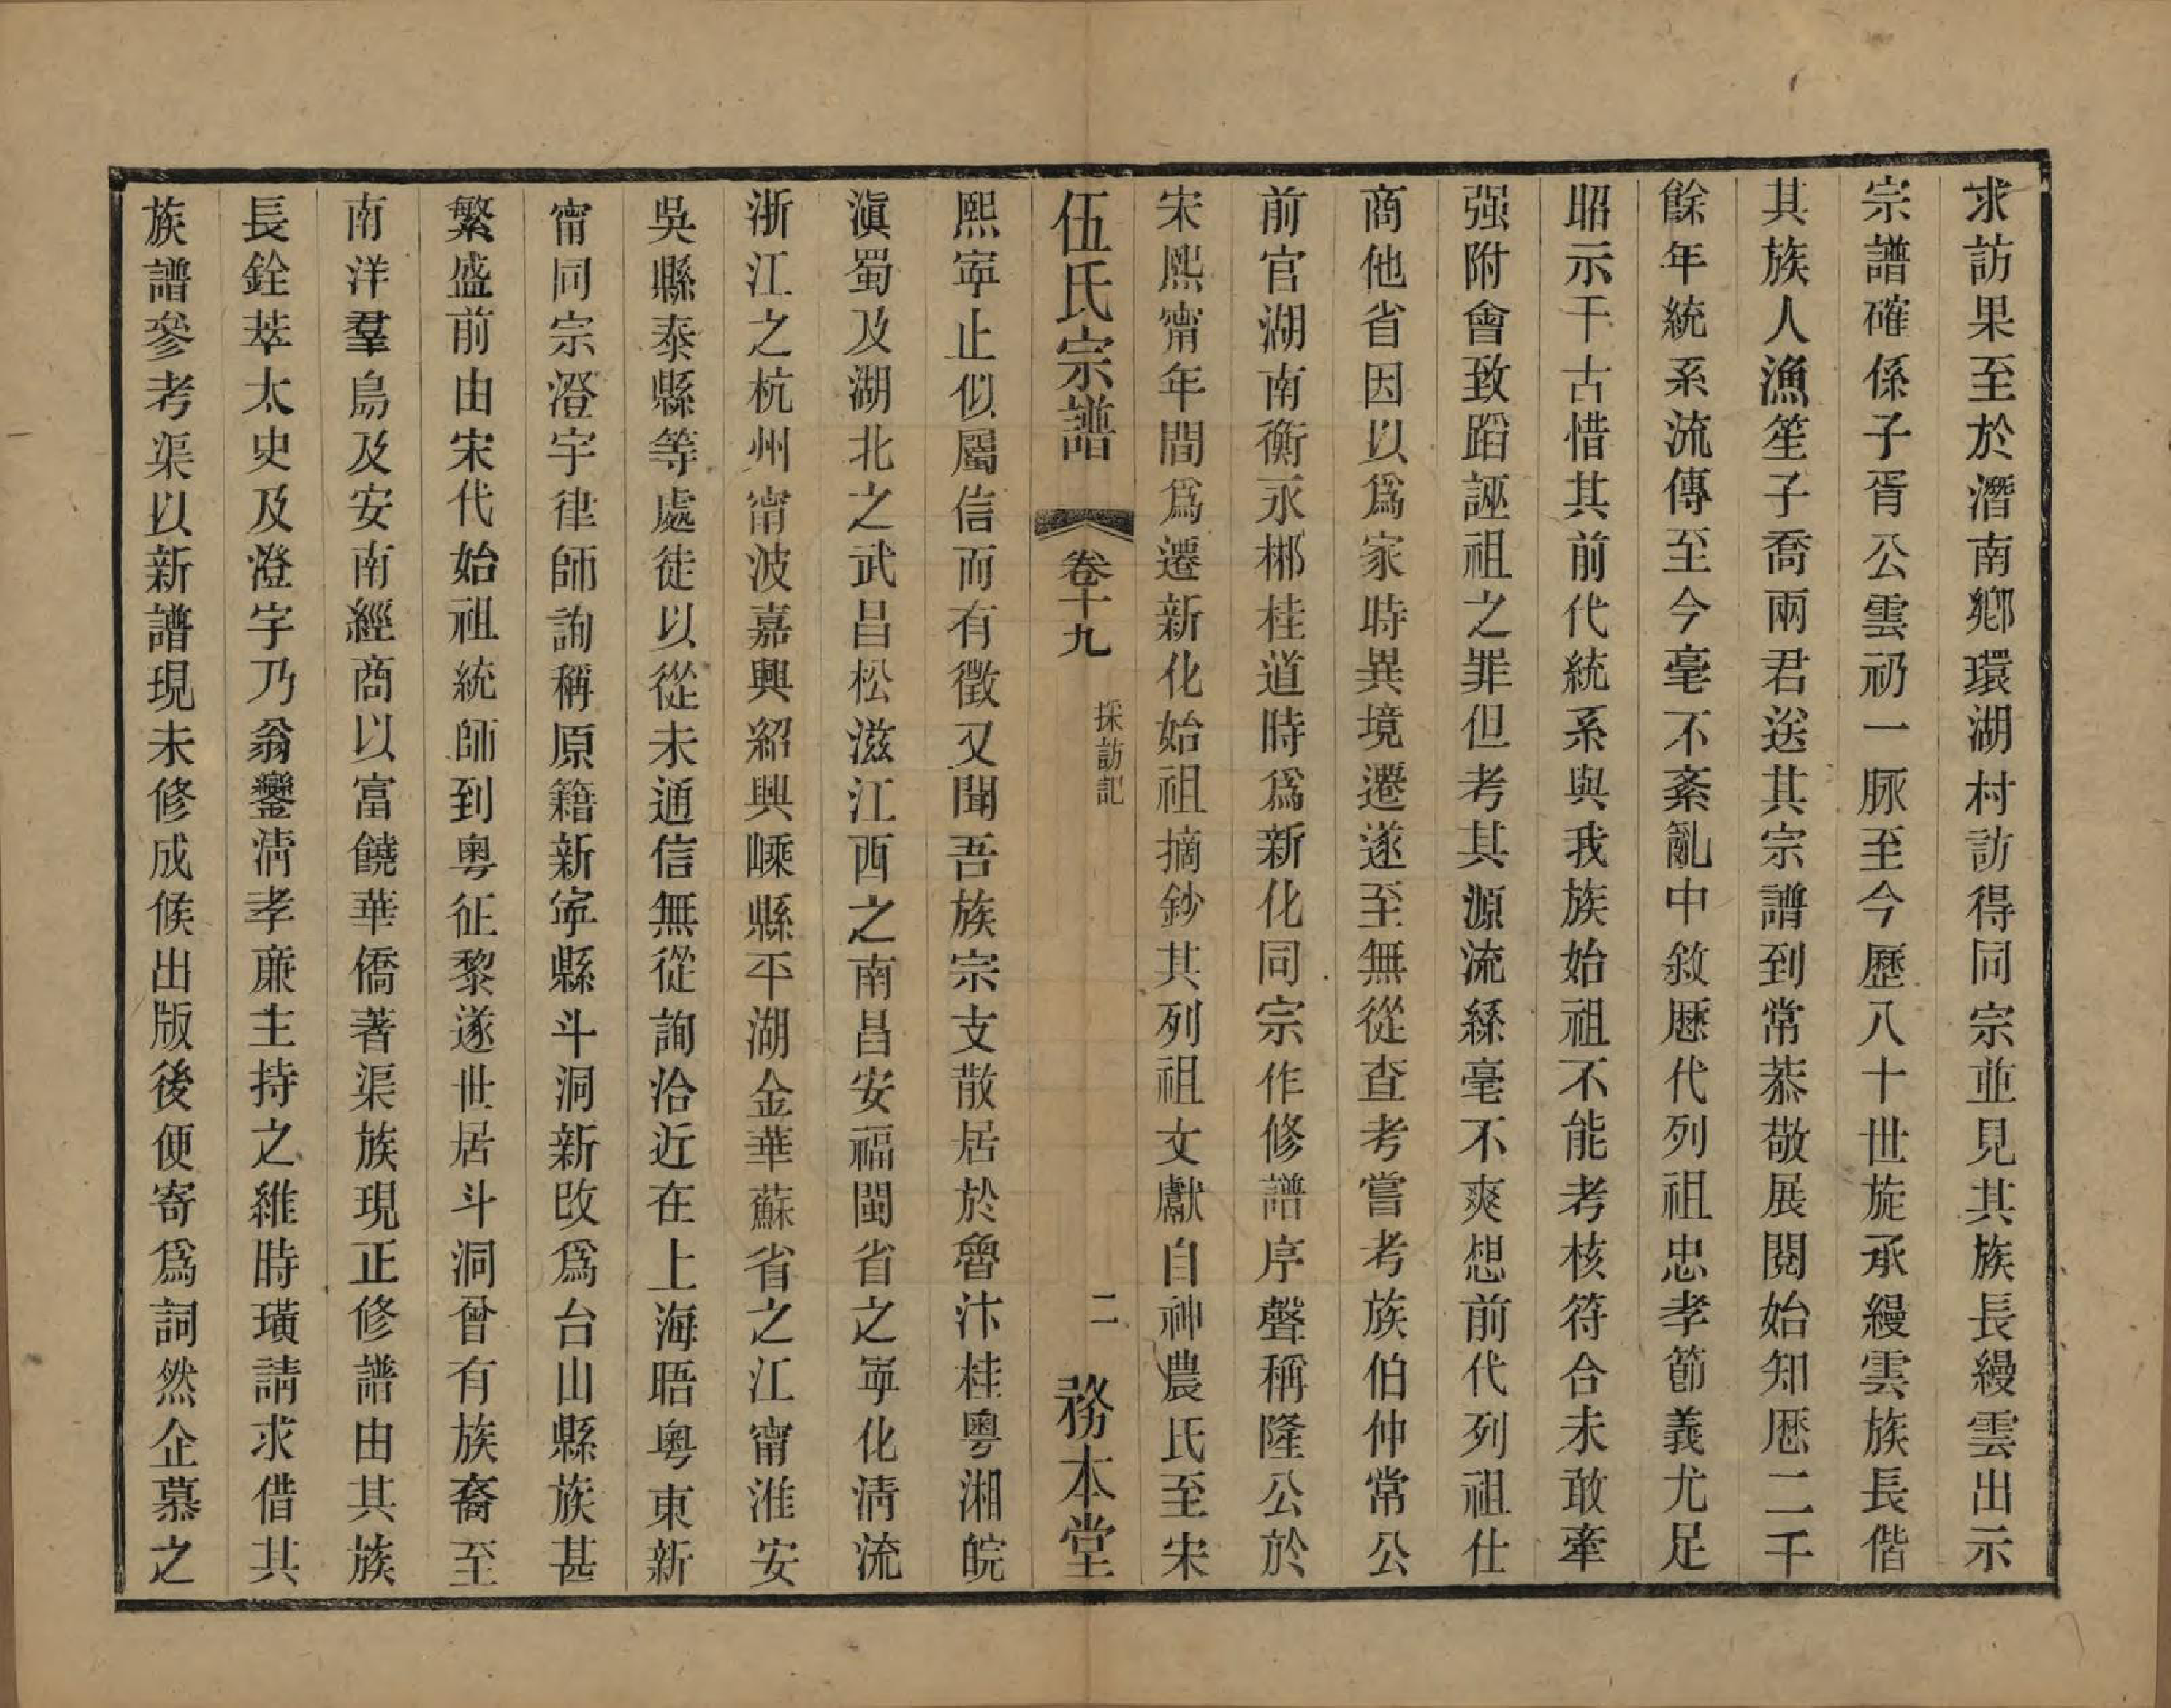 求訪果至於潛南鄉環湖村訪得同宗並見其族長縵雲出示
宗譜確係子胥公雲礽一脈至今歷八十世旋承縵雲族長偕
其族人漁笙子喬兩君送其宗譜到常恭敬展閱始知歷二千
餘年統系流傳至今毫不紊亂中敘歷代列祖忠孝節義尤足
昭示千古惜其前代統系與我族始祖不能考核符合未敢牽
强附會致蹈誣祖之罪但考其源流絲毫不爽想前代列祖仕
商他省因以爲家時異境遷遂至無從查考嘗考族伯仲常公
前官湖南衡永郴桂道時爲新化同宗作修譜序聲稱隆公於
宋熙甯年間爲遷新化始祖摘鈔其列祖文獻自神農氏至宋
伍氏宗譜 卷十九 採訪記 二 務本堂
熙寕止似屬信而有徵又聞吾族宗支散居於魯汴桂粵湘皖
滇蜀及湖北之武昌松滋江西之南昌安福閩省之寕化清流
浙江之杭州甯波嘉興紹興嵊縣平湖金華蘇省之江甯淮安
吳縣泰縣等處徒以從未通信無從詢洽近在上海晤粵東新
甯同宗澄宇律師詢稱原籍新寕縣斗洞新改爲台山縣族甚
繁盛前由宋代始祖統師到粵征黎遂世居斗洞曾有族裔至
南洋羣島及安南經商以富饒華僑著渠族現正修譜由其族
長銓萃太史及澄宇乃翁鑾清孝亷主持之維時璜請求借其
族譜參考渠以新譜現未修成候出版後便寄爲詞然企慕之